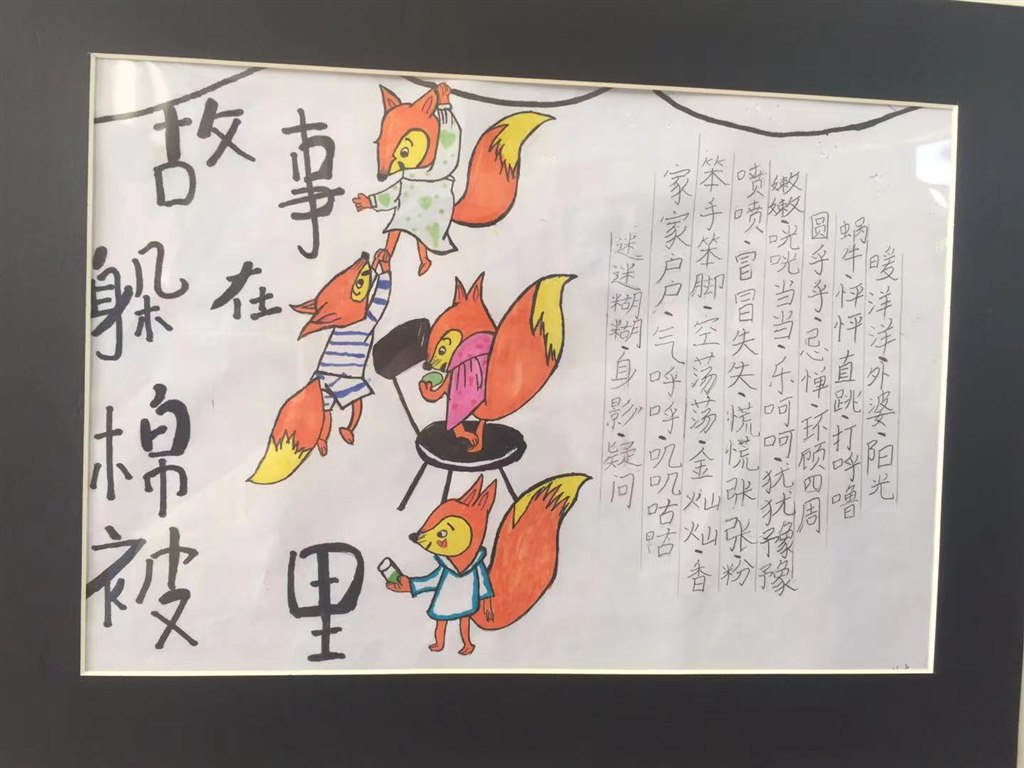 故事
躲在
棉
被里
迷迷糊糊·身影·疑问
家家户户·气呼呼·叽叽咕咕
笨手笨脚·空荡荡·金灿灿·香
喷喷·冒冒失失·慌慌张张·粉
嫩嫩·咣咣当当·乐呵呵·犹犹豫豫
圆乎乎·忌惮·环顾四周
蜗牛·怦怦直跳·打呼噜
暖洋洋·外婆·阳光